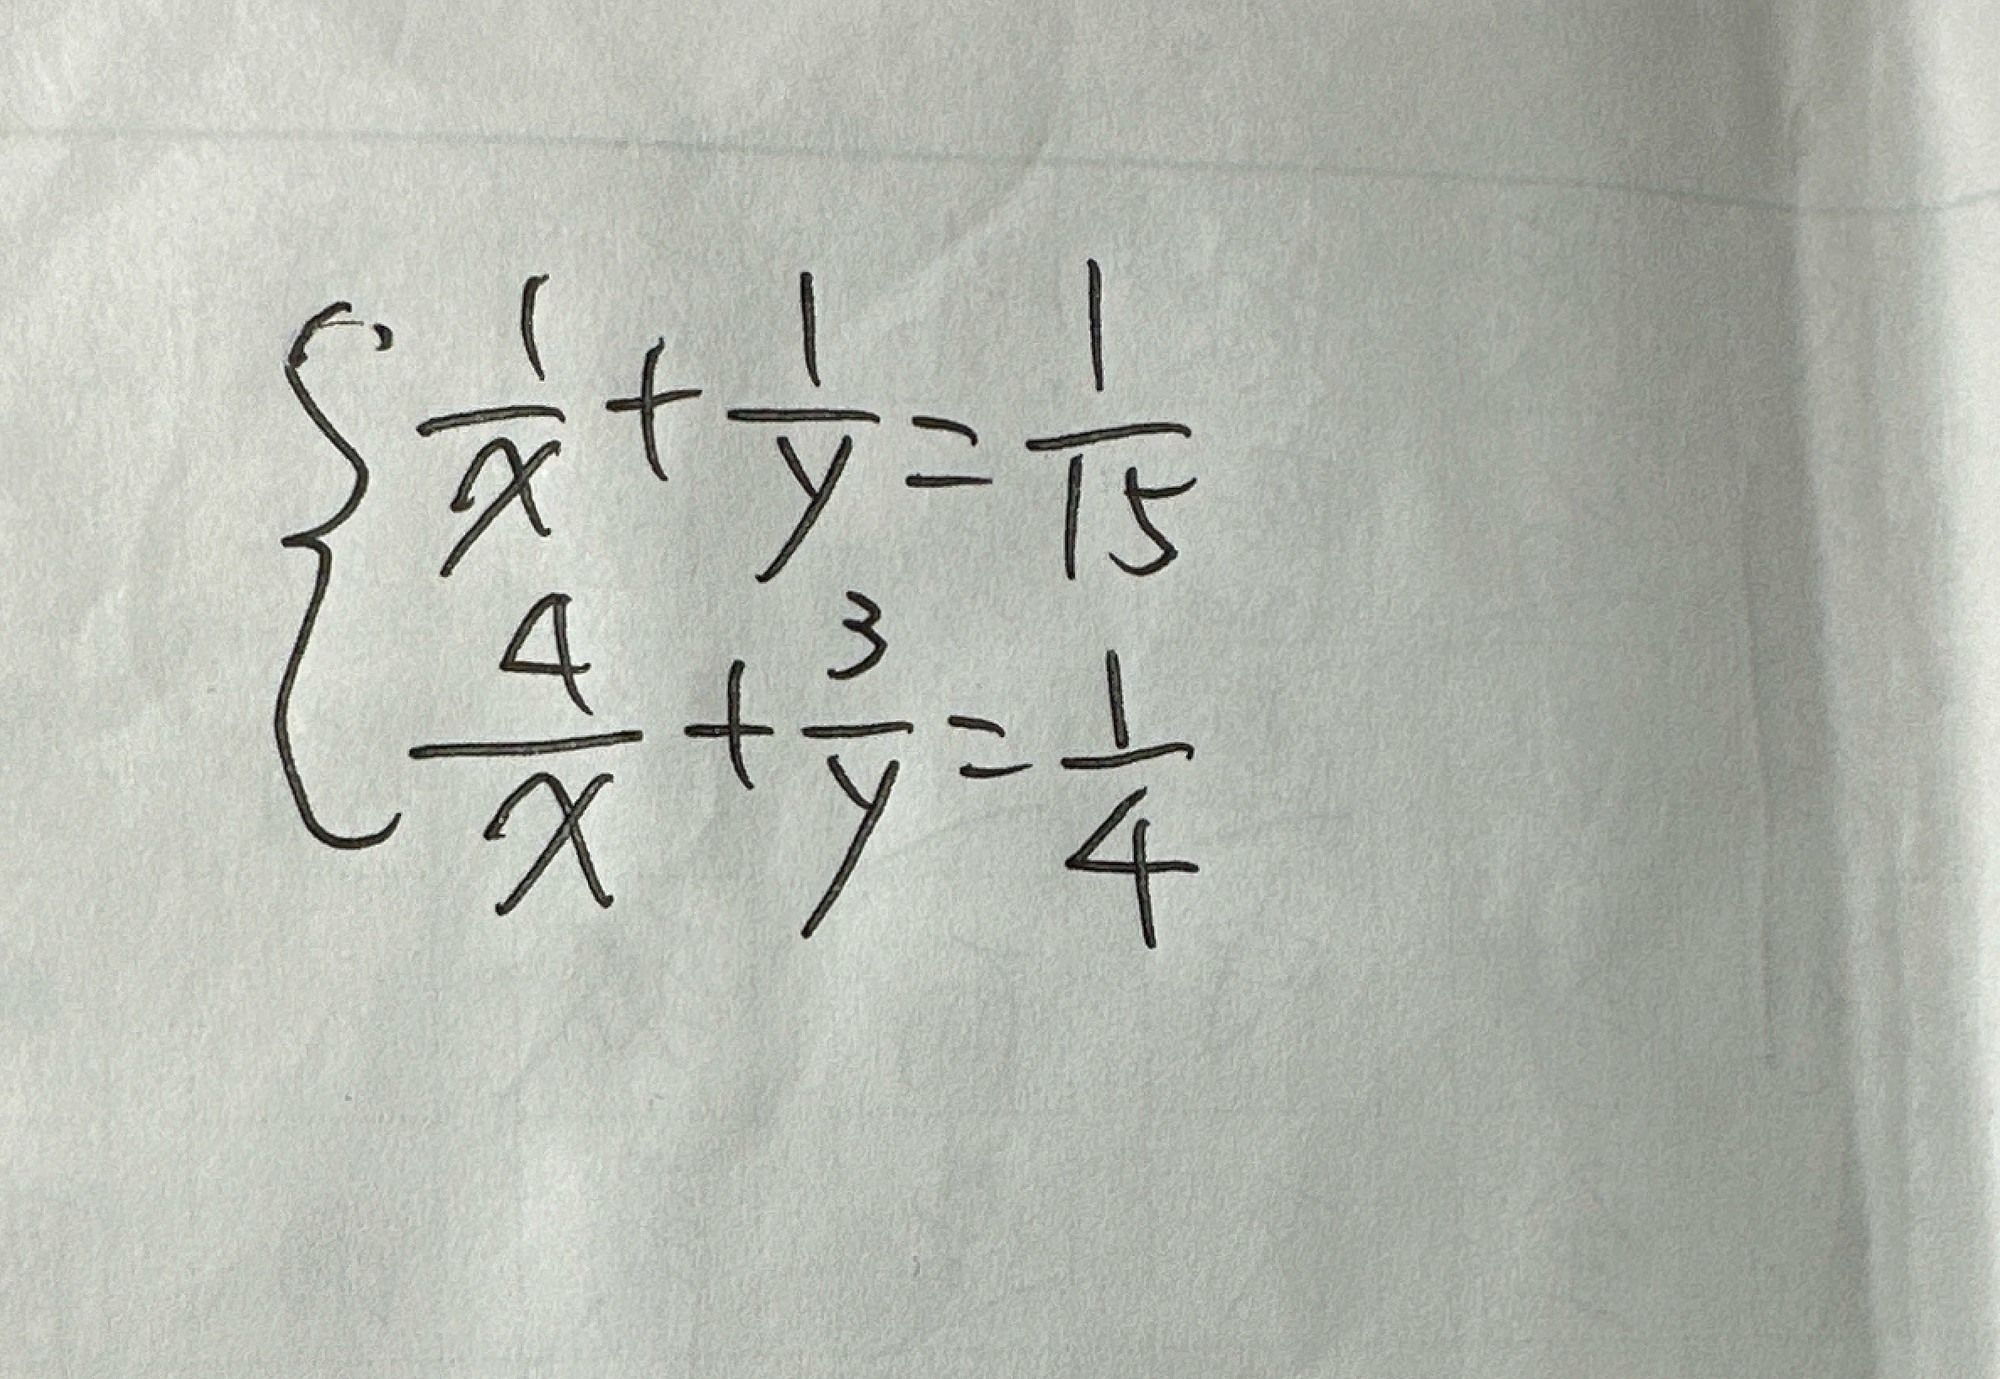 { 1/x + 1/y = 1/15
4/x + 3/y = 1/4